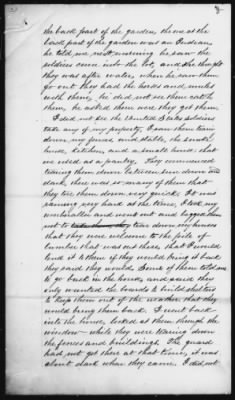 8
the back part of the garden, the one at the
back part of the garden was an Indian,
he told me next morning he saw the
soldiers come into the lot, and he thought
they was after water, when he saw them
go out they had the horses and mules
with them, he did not see them catch
them, he asked them were they got them.
I did not see the United States soldiers
take any of my property, I saw them tear
down my fence and stable, the smoke
house, kitchen, and a small house that
we used as a pantry. They commenced
tearing them down between sun down and
dark, there was so many of them that
they tore them down very quick. It was
raining very hard at the time, I took my
umbrella and went out and begged them
not to tear down my houses
that they were welcome to the pile of
lumber that was out there, that I would
lend it to them if they would bring it back
they said they would. Some of them told me
to go back in the house, and said they
only wanted the boards to build shelters
to keep them out of the weather that they
would bring them back. I went back
into the house, looked at them through the
window while they were tearing down
the fences and buildings. The guard
had not got there at that time, it was
about dark when they came. I did not